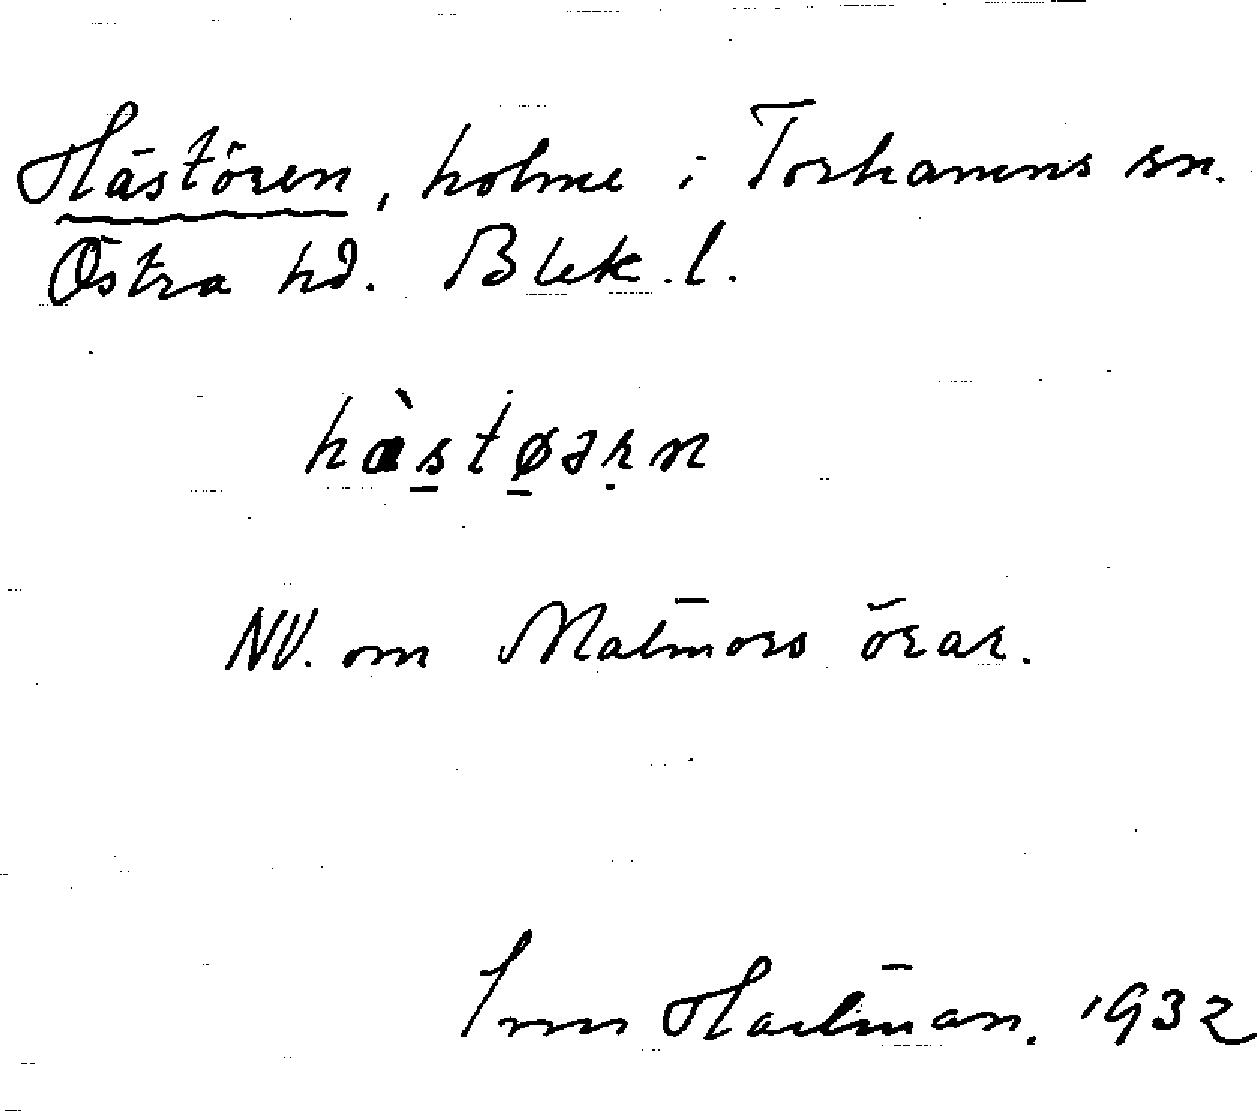 Hästören, holme i Torhamns sn.
Östra hd. Blek. l.
hàstøəṛn
NV. om Malmörs örar.
Hartman. 1932